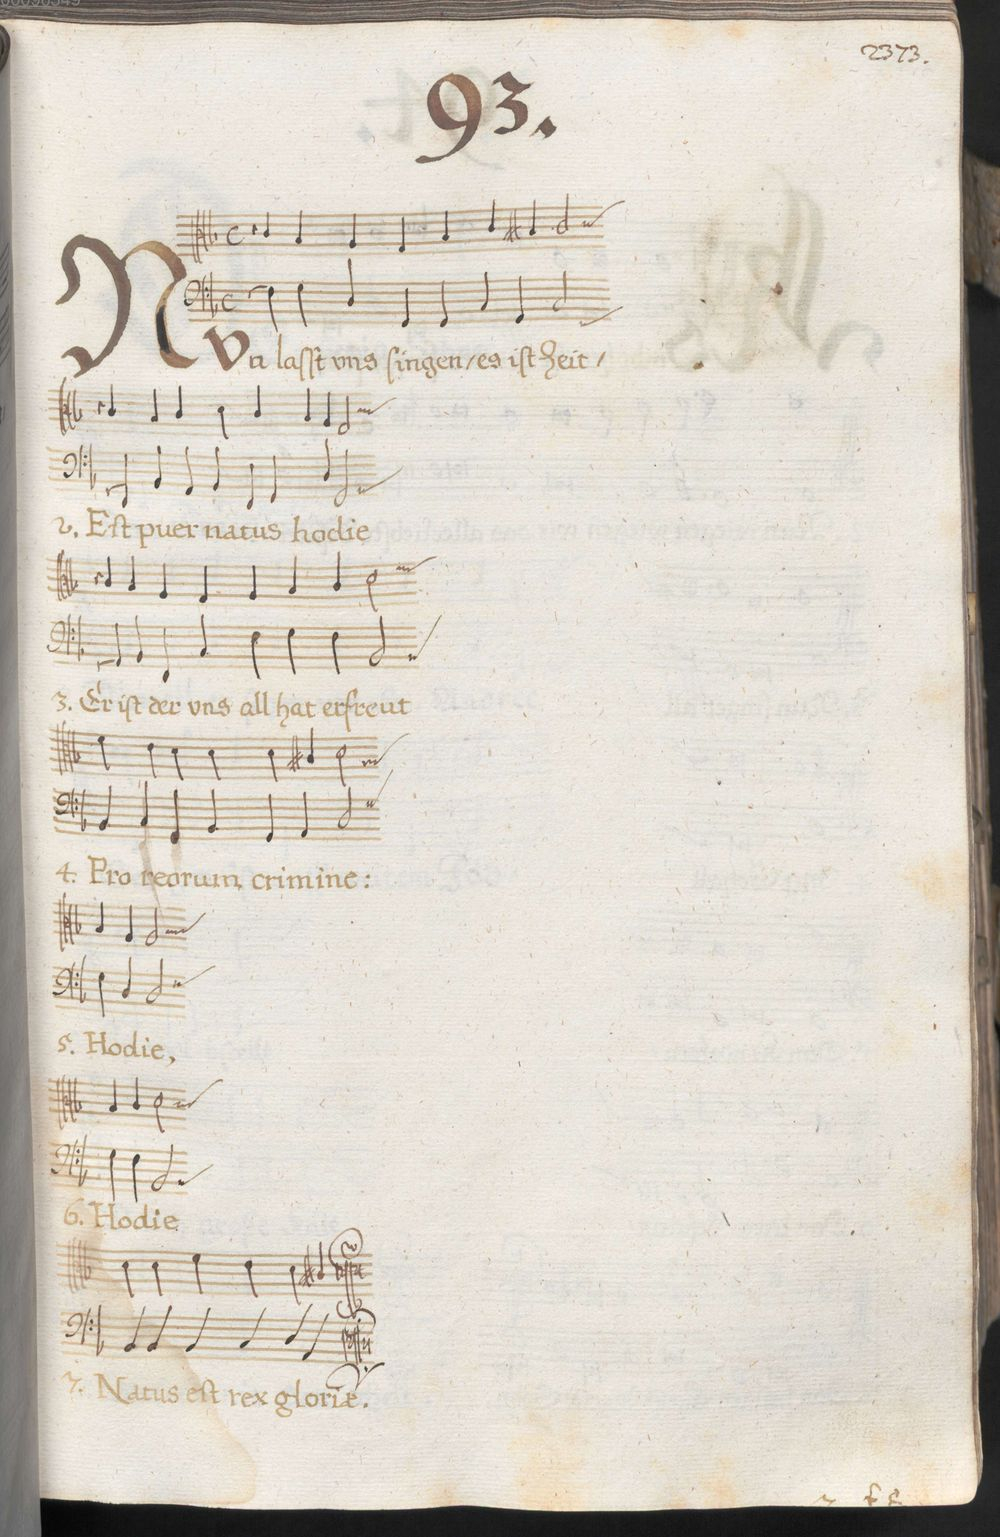 2373.
93.
Nvn lasst vns singen/es ist Zeit/
2. Est puer natus hodie
3. Er ist der vns all hat erfreut
4. Pro reorum crimine:
5. Hodie,
6. Hodie
7. Natus est rex gloriæ.